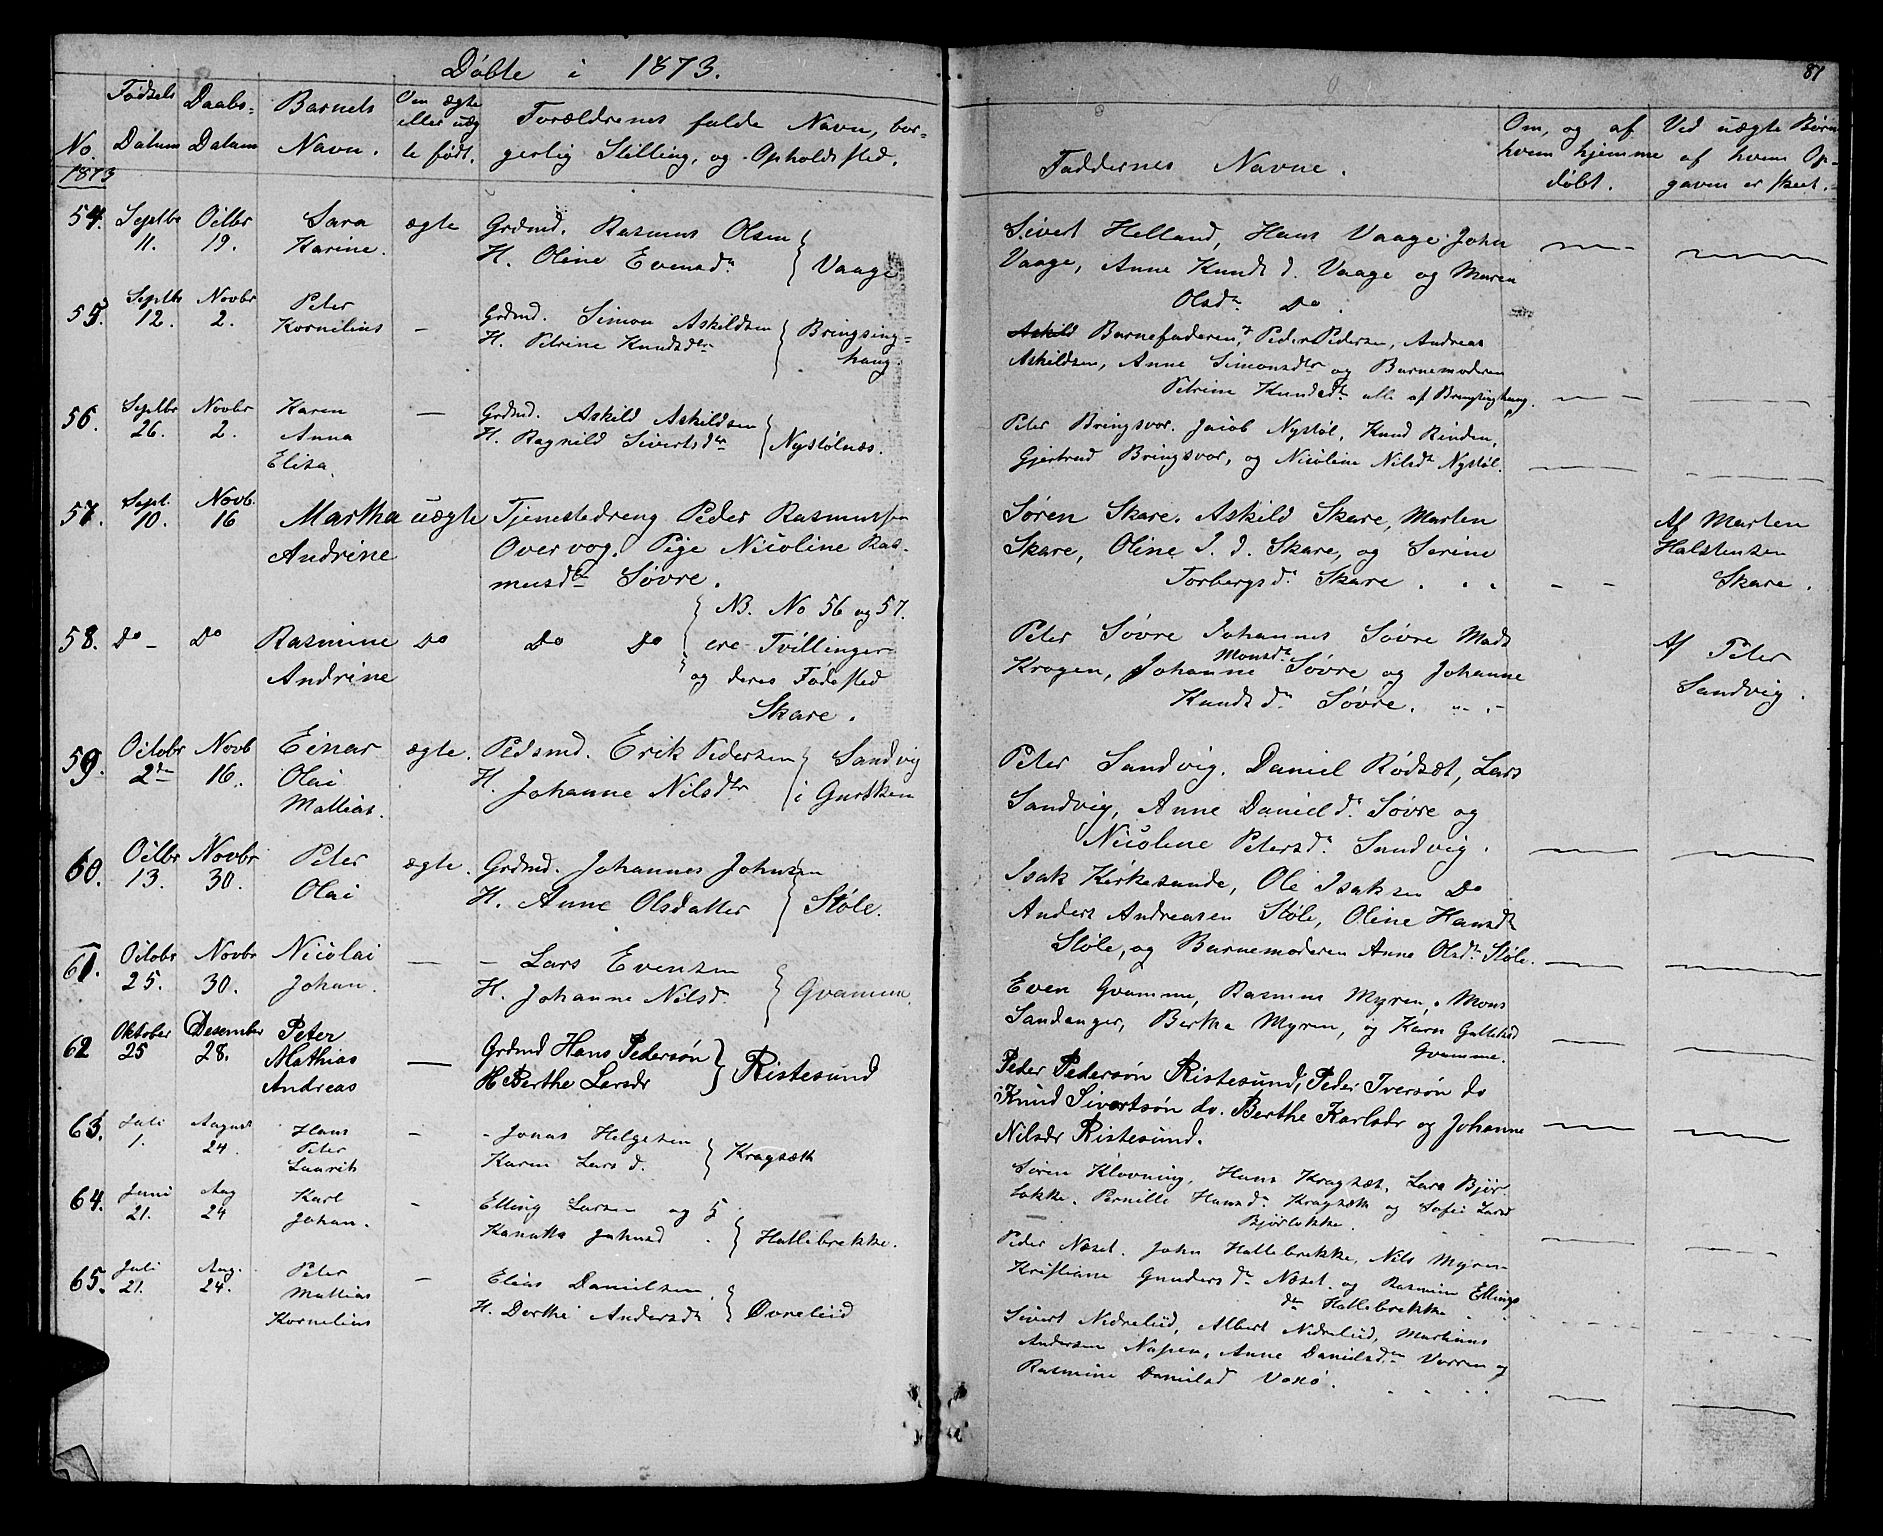 Døbte i 1873.
87
No.
1873
Fødsels Datum
Daabs-Datum
Barnets Navn.
Om ægte eller uæg te født.
Forældrenes fulde Navn, bor-
gerlig Stilling, og Opholdssted.
Faddernes Navne.
Om, og af hvem hjemme døbt.
Ved uægte Børn af hvem Op-gaven er skeet.
54. Septbr 11. Octbr 19. Sara Karine. ægte Grdmd. Rasmus Olsen
H. Oline Evensdr } Vaage
Sivert Helland, Hans Vaage John
Vaage, Anne Knudsd. Vaage og Maren
Olsdr Do
55. Septbr 12. Novbr 2. Peter Kornelius — Grdmd. Simon Askildsen
H. Petrine Knudsdtr } Bringsing-
haug
Askild Barnefaderen, Peder Pedersen, Andreas
Askildsen, Anne Simonsdtr og Barnemoderen
Petrine Knudsdr alle af Bringsinghaug.
56. Septbr 26. Novbr 2. Karen Anna Elisa — Grdmd. Askild Askildsen
H. Ragnild Sivertsdr } Nystølnæs.
Peter Bringsvor. Jacob Nystøl, Knud Rinden,
Gjertrud Bringsvor, og Nicoline Nilsdr Nystøl.
57. Sept. 10. Novb. 16 Martha Andrine uægte Tjenestedreng Peder Rasmussen
Overvog. Pige Nicoline Ras-
musdtr Søvre.
Søren Skare. Askild Skare, Marten
Skare, Oline I. d. Skare, og Serine
Torbergsd. Skare.
Af Marten
Halstensen
Skare.
58. Do Do Rasmine Andrine Do Do Do
NB. No 56 og 57.
ere Tvillinger
og deres Fødested
Skare.
Peter Søvre Johannes Søvre Mads
Krogen, Johanne Monsdr Søvre og Johanne
Knudsdr Søvre.
Af Peter
Sandvig.
59. Octobr 2den Novb 16. Einar Olai Mattias. ægte. Pedsmd. Erik Pedersen
H. Johanne Nilsdtr } Sandvig
i Gursken
Peter Sandvig. Daniel Rødset, Lars
Sandvig, Anne Danield. Søvre og
Nicolene Petersdr Sandvig.
60. Octbr 13. Novbr 30. Peter Olai ægte. Grdmd. Johannes Johnsen
H. Anne Olsdatter } Støle.
Isak Kirkesunde, Ole Isaksen Do
Anders Andreasen Støle, Oline Hansdr
Støle, og Barnemoderen Anne Olsdr Støle.
61. Octobr 25. Novbr 30. Nicolai Johan. — - Lars Evensen
H. Johanne Nilsd. } Gvamme.
Even Gvamme, Rasmus Myren, Mons
Sandanger, Bertha Myren, og Karn
Gvamme.
62 Oktober 25 Desember 28. Peter Mathias Andreas — Grdmd Hans Pedersøn
H Berthe Larsdr } Ristesund
Peder Pedersøn Ristesund, Peder Iversøn do
Knud Sivertsøn do. Berthe Karlsdr og Johanne
Nilsdr Ristesund.
63. Juli 1. August 24. Hans Peter Laurits - - Jonas Helgesen
Karen Larsd. } Kragsæth
Søren Kløvning, Hans Kragsæt, Lars Bjør-
lokke. Pernille Hansdr Kragsæth og Sofie Larsd
Bjørlokke.
64. Juni 21. Aug 24 Karl Johan. - Elling Larsen og
Jahnsd } Hallebrekke.
Peder Næset. John Hallebrekke, Nils Myren
Kristiane Gundersdr Næset. og Rasmine Ellings
dr Hallebrekke
65. Juli 21. Aug. 24. Peter Mattias Kornelius — Elias Danielsen
H. Dorthe Andersdr } Øvreleid
Sivert Nedreleid, Albert Nedreleid, Martinus
Andersen, Anne Danielsdr Vorren og
Rasmine Danielsd Voksø.